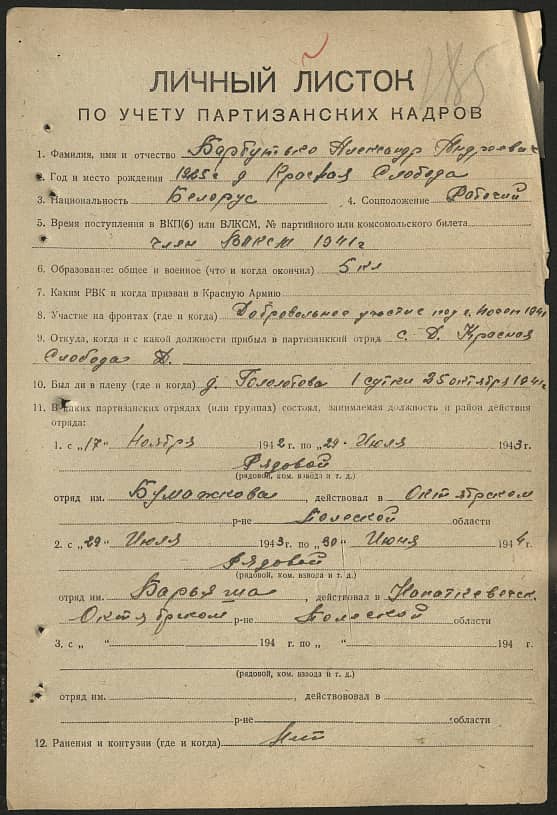 185
ЛИЧНЫЙ ЛИСТОК
ПО УЧЕТУ ПАРТИЗАНСКИХ КАДРОВ
1. Фамилия, имя и отчество Барбутько Александр Андреевич
2. Год и место рождения 1925г д Красная Слобода
3. Национальность Белорус 4. Соцположение Рабочий
5. Время поступления в ВКП(б) или ВЛКСМ, № партийного или комсомольского билета
член ВЛКСМ 1941г
6. Образование: общее и военное (что и когда окончил) 5 кл
7. Каким РВК и когда призван в Красную Армию
8. Участие на фронтах (где и когда) Добровольное участие под 1941
9. Откуда, когда и с какой должности прибыл в партизанкий отряд с. Д. Красная
Слобода Д.
10. Был ли в плену (где и когда) д. 1 сутки 25 октября 1941г
11. В каких партизанских отрядах (или группах) состоял, занимаемая должность и район действия
отряда:
1. с „17" Ноября 1942 г. по „29" Июля 1943г.
Рядовой
(рядовой, ком. взвода и т. д.)
отряд им. Бумажкова, действовал в Октябрском
р-не Полеской области
2. с „29" Июля 1943г. по „30" Июня 1944г.
Рядовой
(рядовой, ком. взвода и т. д.)
отряд им., действовал в Копаткевичск.
Октябрском р-не Полеской области
3. с „ " 194 г. по „ " 194 г.
(рядовой, ком. взвода и т. д.)
отряд им., действововал в
р-не области
12. Ранения и контузии (где и когда) Нет